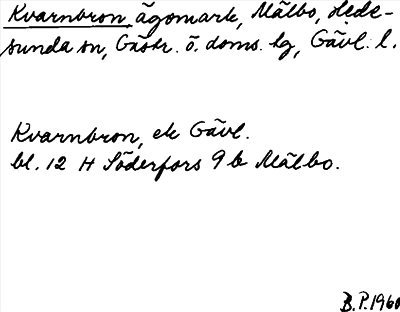 Kvarnbron ägomark, Mälbo, Hede-
sunda sn, Gästr. ö. doms. tg, Gävl. l.
Kvarnbron, ek Gävl.
bl. 12 H Söderfors 9 b Mälbo.
B.P. 1960